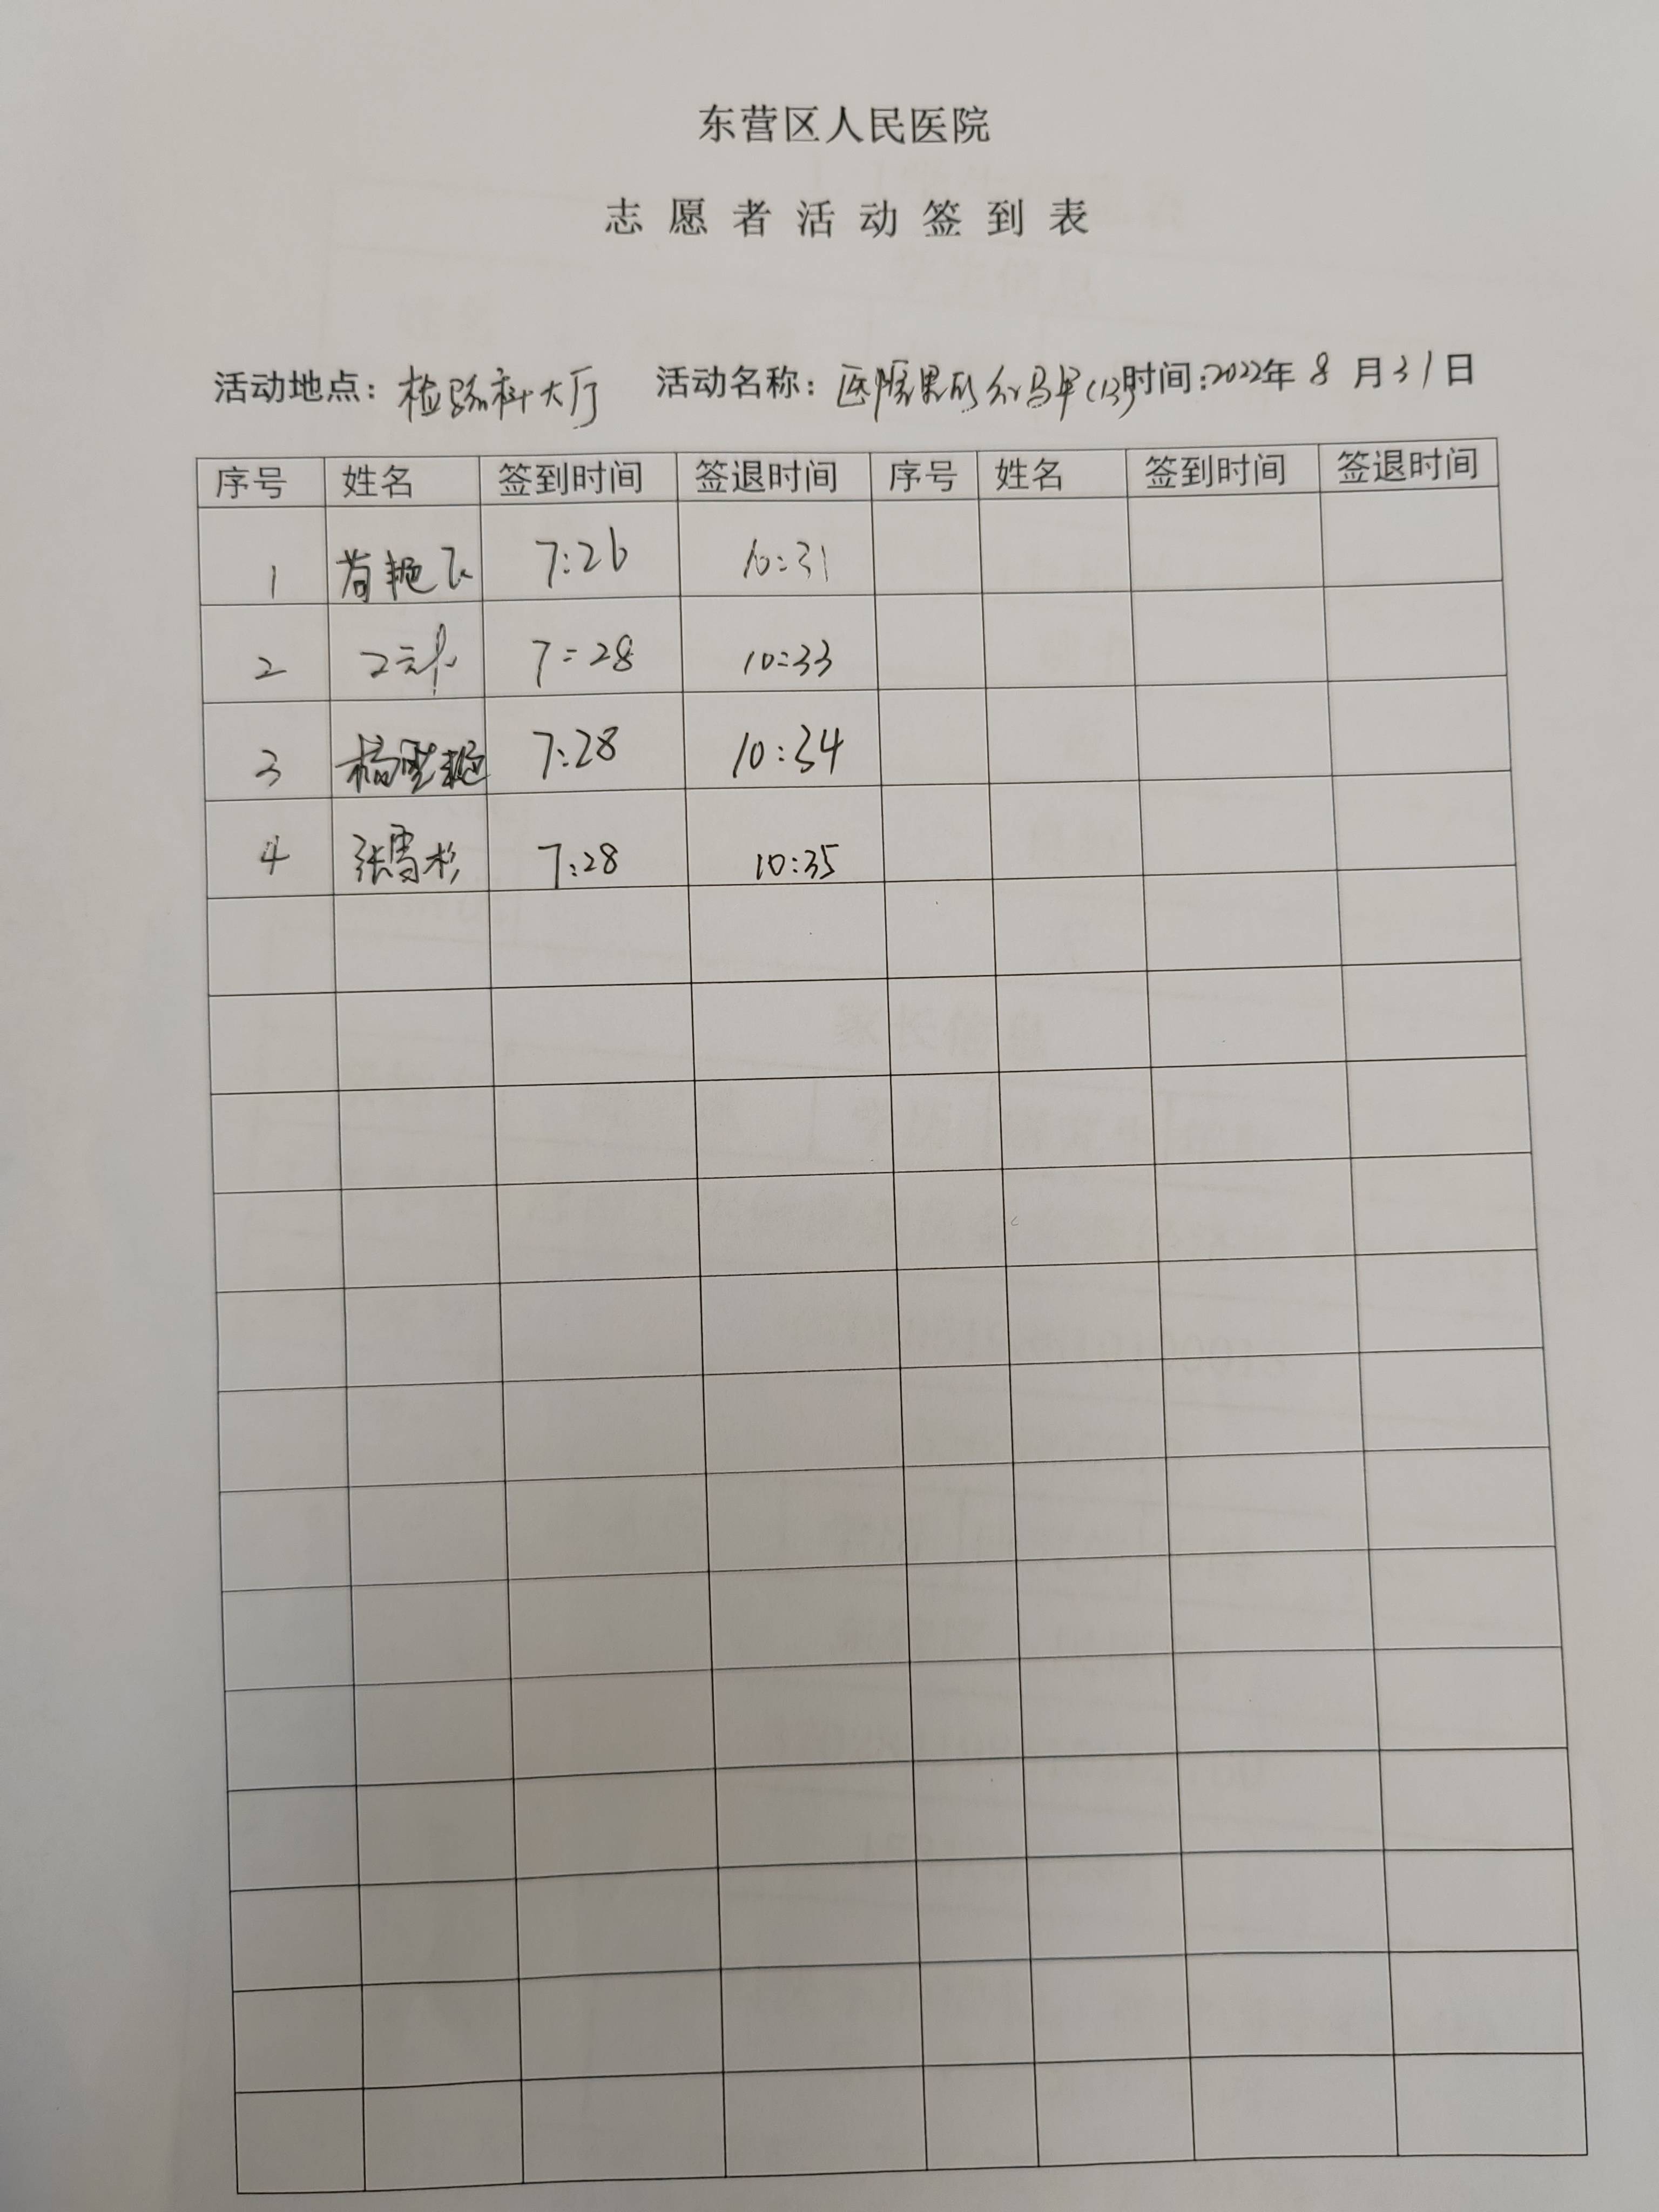 东营区人民医院
志愿者活动签到表
活动地点：检验科大厅 活动名称：医院里的红马甲(13) 时间：2022年8月31日
序号 姓名 签到时间 签退时间 序号 姓名 签到时间 签退时间
1 艳飞 7:26 10:31
2 7:28 10:33
3 杨雪艳 7:28 10:34
4 张雪杉 7:28 10:35